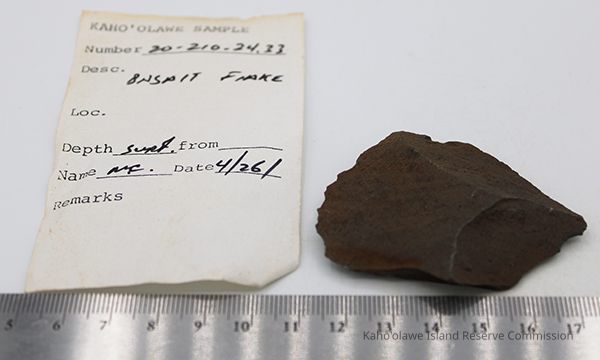 KAHO'OLAWE SAMPLE
Number 20-210-24.33
Desc. BNSAlT FlAKE
Loc.
Depth surf. from
Name MC. Date 4/26/
Remarks
5 6 7 8 9 10 11 12 13 14 15 16 17
Kaho'olawe Island Reserve Commission